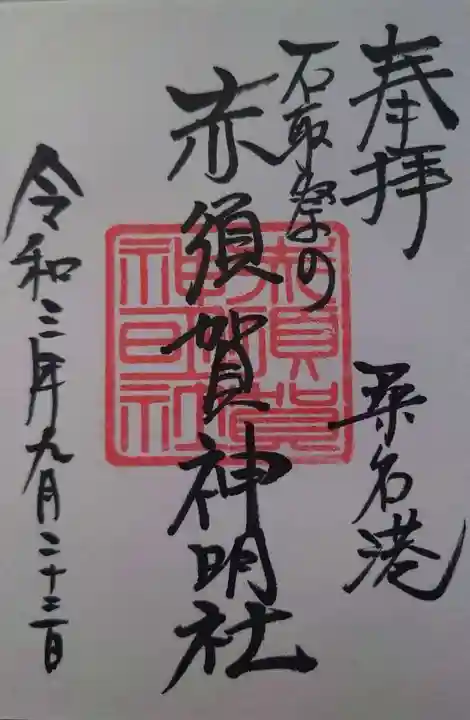 奉拝
桑名港
石取祭の
赤須賀神明社
赤須賀
神明社
令和三年九月二十三日